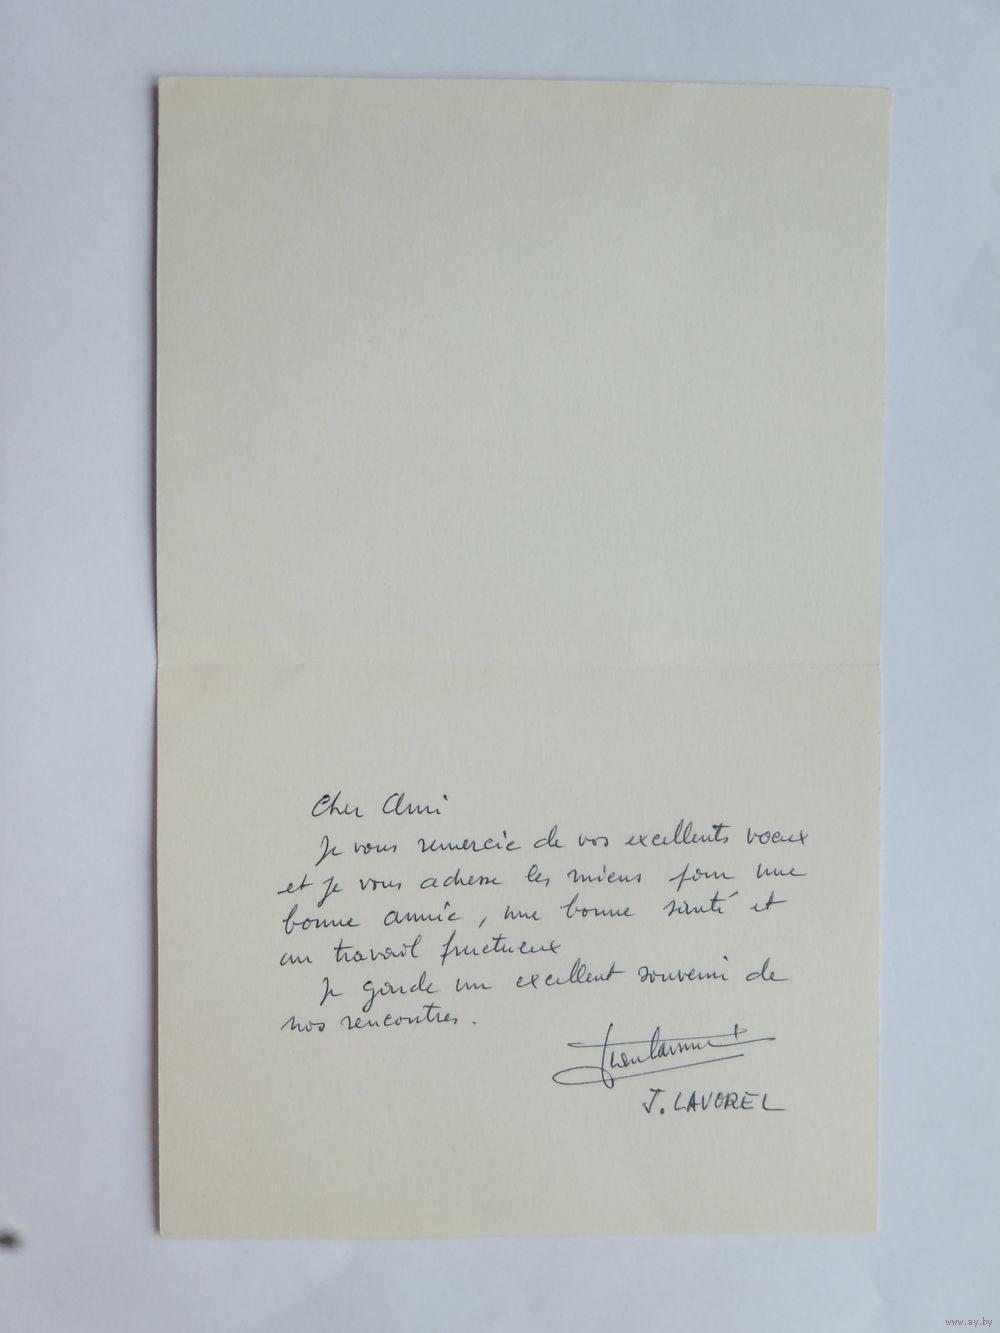 Cher Ami
Je vous remercie de vos excellents voeux
et je vous adresse les miens pour une
bonne année, une bonne santé et
un travail fructueux
Je garde un excellent souvenir de
nos rencontres.
J. LAVOREL
www.ay.by